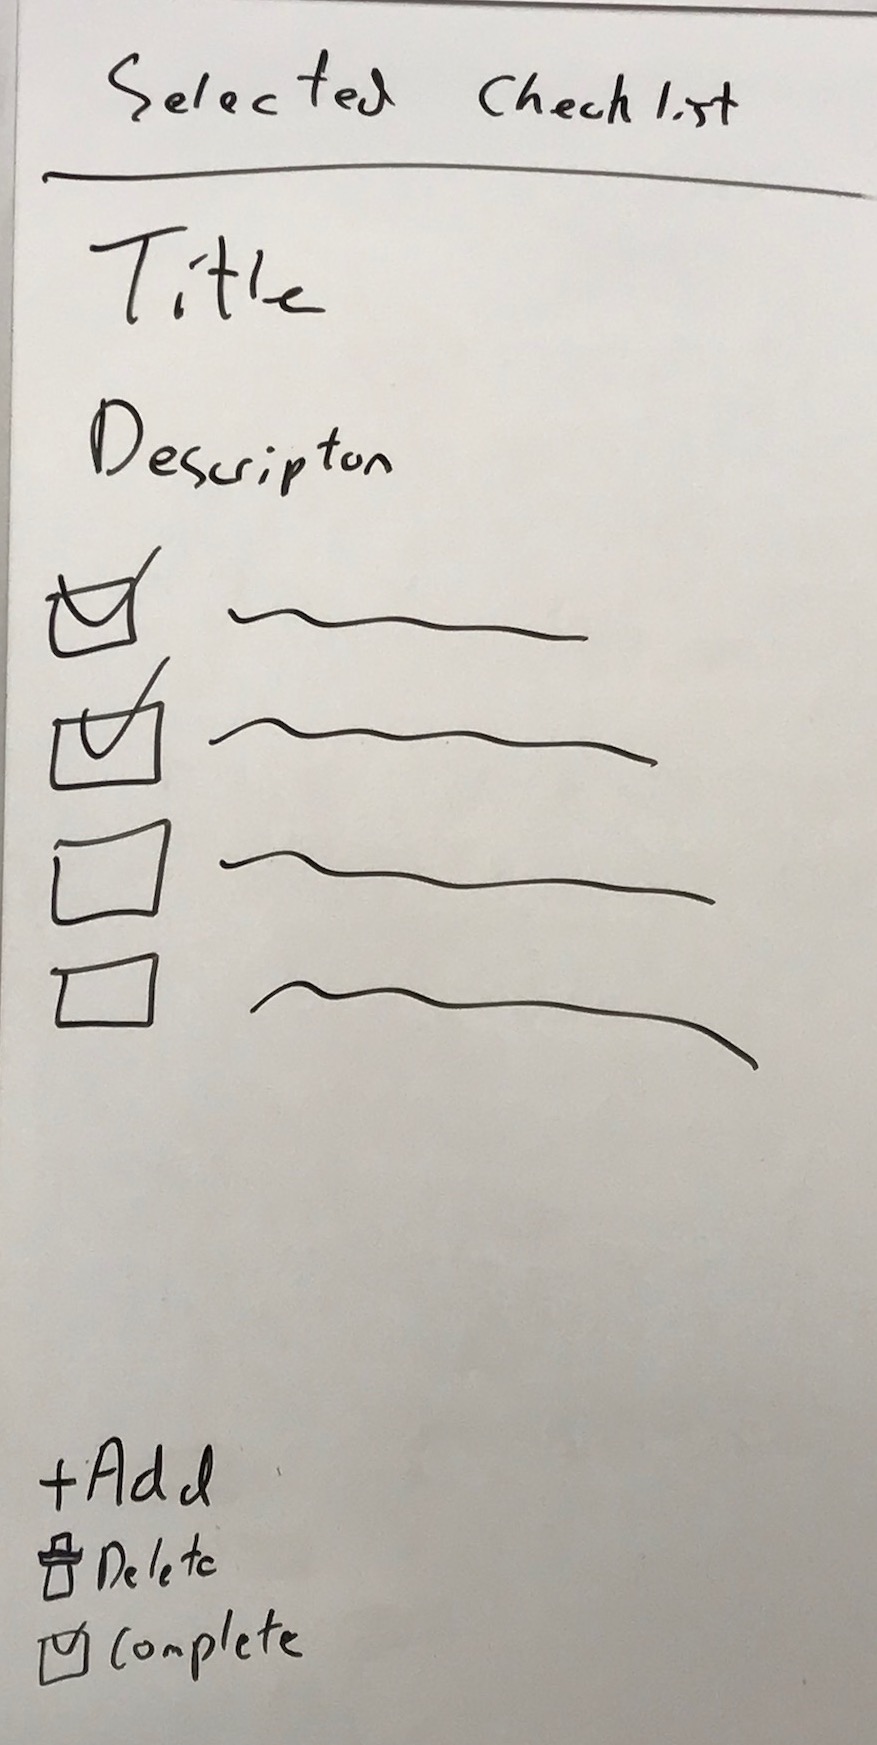 Selected Checklist
Title
Descripton
+Add
Delete
Complete